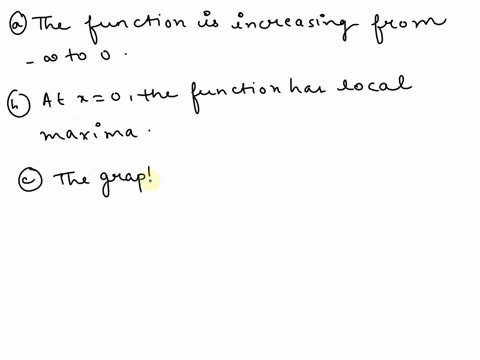 (a) The function is increasing from
- ∞ to 0 .
(b) At x=0, the function has local
maxima .
(c) The grap